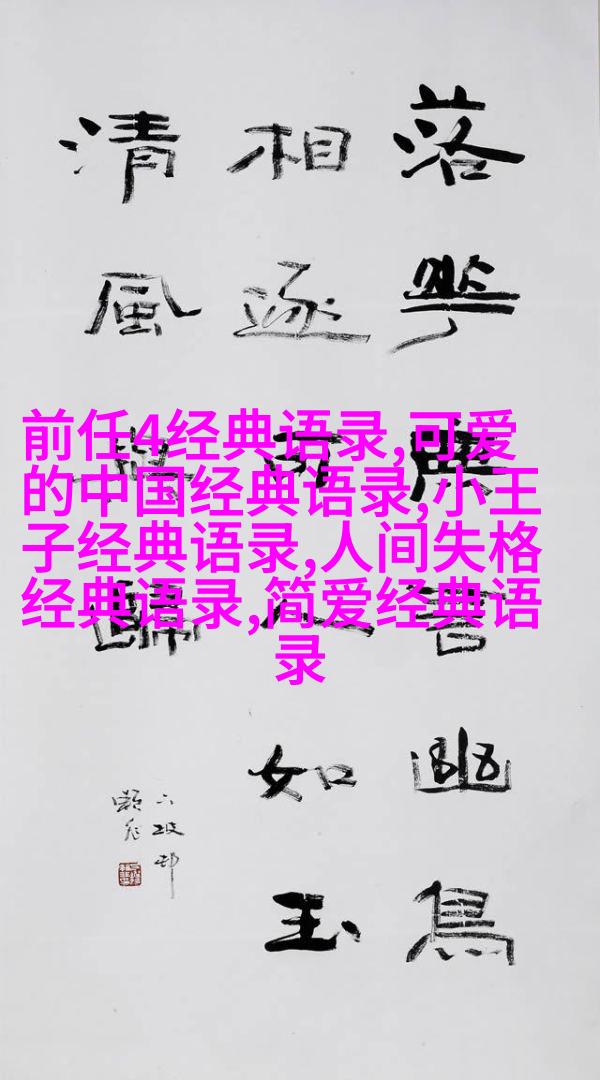 前任4经典语录,可爱
的中国经典语录,小王
子经典语录,人间失格
经典语录,简爱经典语
录
落華無幽鳥
相逐人如玉
清風歸